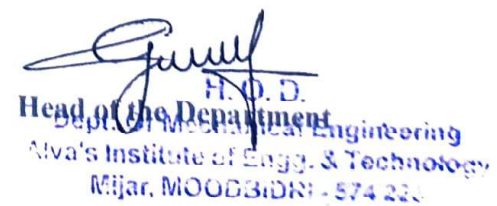 H. O. D.
Head of the Department
Dept. Of Mechanical Engineering
Alva's Institute of Engg. & Technology
Mijar, MOODBIDRI - 574 22